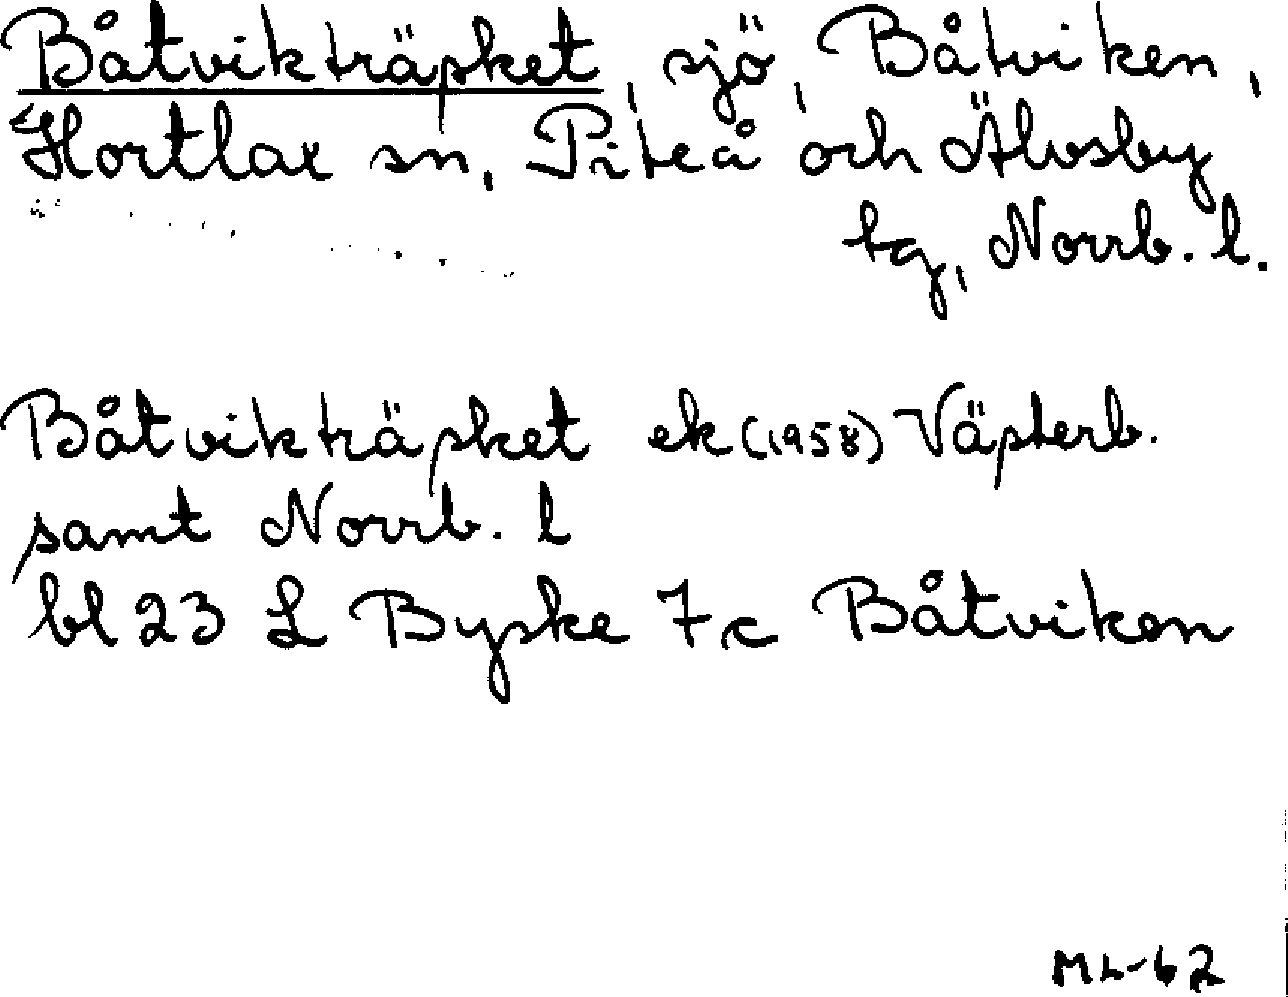 Båtvikträsket, sjö, Båtviken,
Hortlax sn, Piteå och Älvsby
tg, Norrb. l.
Båtvikträsket ek (1958) Västerb.
samt Norrb. l
bl 23 L Byske 7c Båtviken
ML-62